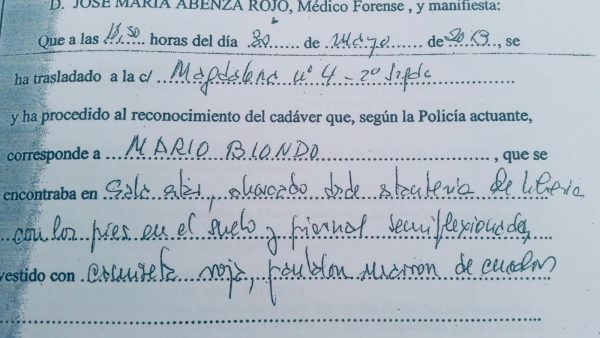 D. JOSÉ MARÍA ABENZA ROJO, Médico Forense , y manifiesta:
Que a las 16,50 horas del día 30 de Mayo de 2013, se
ha trasladado a la c/ Magdalena nº 4 - 2º Izqda
y ha procedido al reconocimiento del cadáver que, según la Policía actuante,
corresponde a MARIO BIONDO , que se
encontraba en Sala estar, ahorcado desde estanteria de libreria
con los pies en el suelo y piernas semiflexionadas,
vestido con camiseta roja, pantalon marron de cuadros